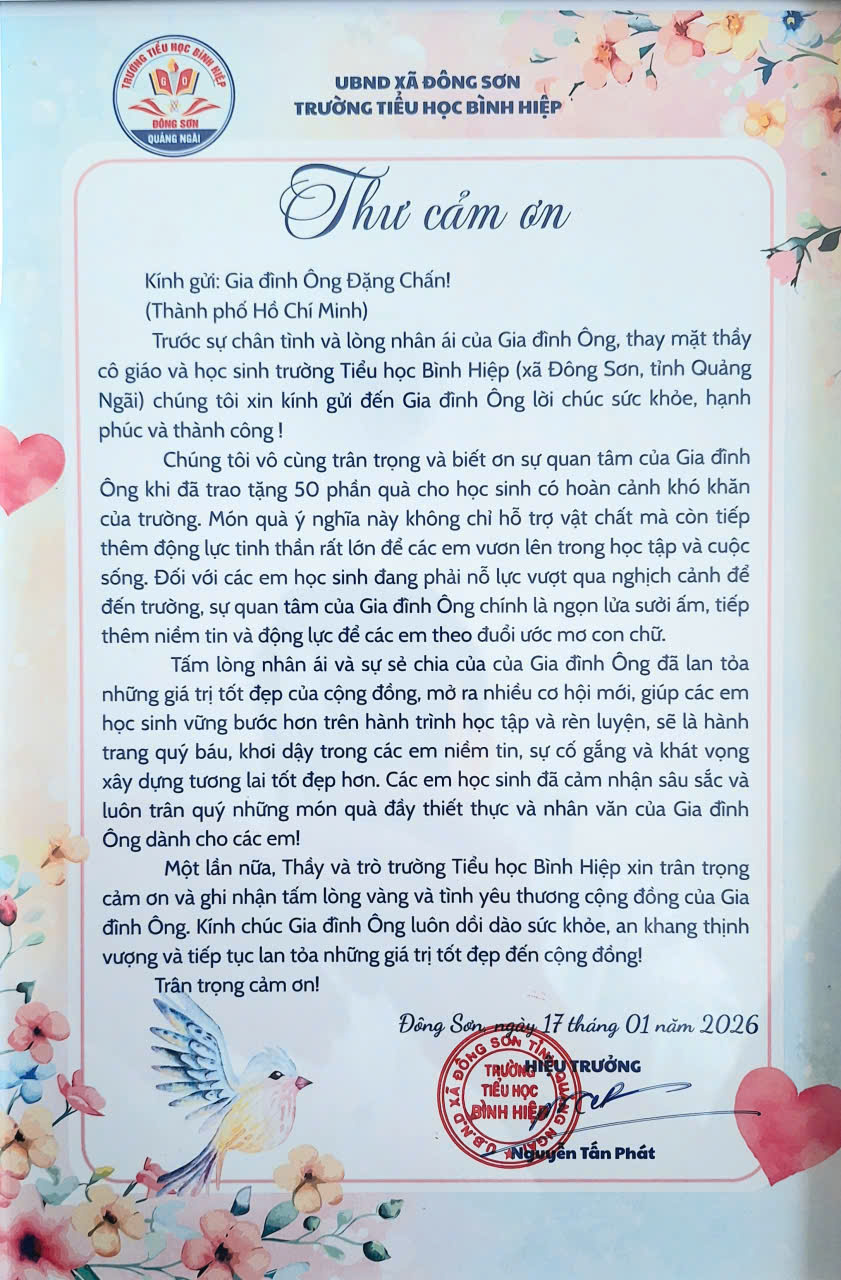 TRƯỜNG TIỂU HỌC BÌNH HIỆP
G D
ĐÔNG SƠN
QUẢNG NGÃI
UBND XÃ ĐÔNG SƠN
TRƯỜNG TIỂU HỌC BÌNH HIỆP
Thư cảm ơn
Kính gửi: Gia đình Ông Đặng Chấn!
(Thành phố Hồ Chí Minh)
Trước sự chân tình và lòng nhân ái của Gia đình Ông, thay mặt thầy
cô giáo và học sinh trường Tiểu học Bình Hiệp (xã Đông Sơn, tỉnh Quảng
Ngãi) chúng tôi xin kính gửi đến Gia đình Ông lời chúc sức khỏe, hạnh
phúc và thành công !
Chúng tôi vô cùng trân trọng và biết ơn sự quan tâm của Gia đình
Ông khi đã trao tặng 50 phần quà cho học sinh có hoàn cảnh khó khăn
của trường. Món quà ý nghĩa này không chỉ hỗ trợ vật chất mà còn tiếp
thêm động lực tinh thần rất lớn để các em vươn lên trong học tập và cuộc
sống. Đối với các em học sinh đang phải nỗ lực vượt qua nghịch cảnh để
đến trường, sự quan tâm của Gia đình Ông chính là ngọn lửa sưởi ấm, tiếp
thêm niềm tin và động lực để các em theo đuổi ước mơ con chữ.
Tấm lòng nhân ái và sự sẻ chia của của Gia đình Ông đã lan tỏa
những giá trị tốt đẹp của cộng đồng, mở ra nhiều cơ hội mới, giúp các em
học sinh vững bước hơn trên hành trình học tập và rèn luyện, sẽ là hành
trang quý báu, khơi dậy trong các em niềm tin, sự cố gắng và khát vọng
xây dựng tương lai tốt đẹp hơn. Các em học sinh đã cảm nhận sâu sắc và
luôn trân quý những món quà đầy thiết thực và nhân văn của Gia đình
Ông dành cho các em!
Một lần nữa, Thầy và trò trường Tiểu học Bình Hiệp xin trân trọng
cảm ơn và ghi nhận tấm lòng vàng và tình yêu thương cộng đồng của Gia
đình Ông. Kính chúc Gia đình Ông luôn dồi dào sức khỏe, an khang thịnh
vượng và tiếp tục lan tỏa những giá trị tốt đẹp đến cộng đồng!
Trân trọng cảm ơn!
Đông Sơn, ngày 17 tháng 01 năm 2026
HIỆU TRƯỞNG
U.B.N.D XÃ ĐÔNG SƠN TỈNH QUẢNG NGÃI
TRƯỜNG
TIỂU HỌC
BÌNH HIỆP
Nguyễn Tấn Phát